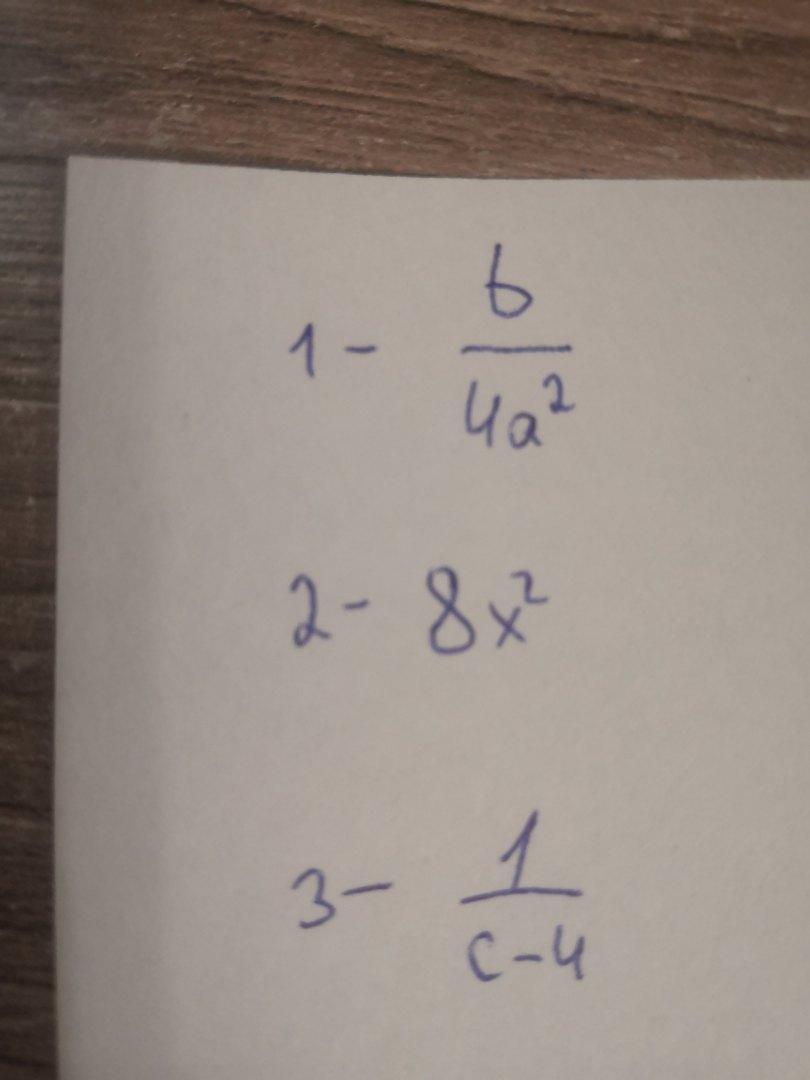 1 - b/4a²
2 - 8x²
3 - 1/(c-4)